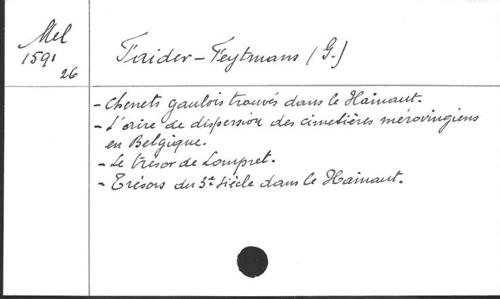 Mel
1591
26
Faider-Feytmans (G.)
- Chenets gaulois trouvés dans le Hainaut.
- L'aire de dispersion des cimetières mérovingiens
en Belgique.
- Le trésor de Lompret.
- Trésors du 3e siècle dans le Hainaut.